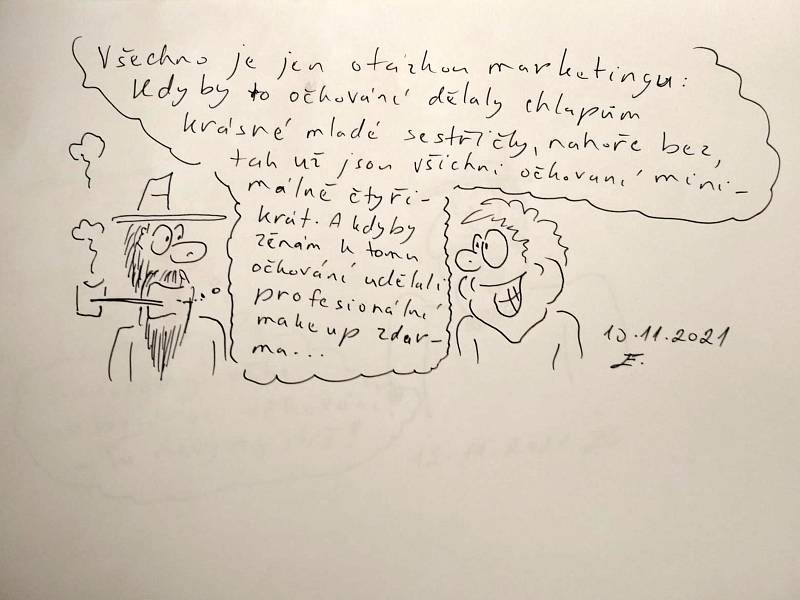 Všechno je jen otázkou marketingu:
Kdyby to očkování dělaly chlapům
krásné mladé sestřičky, nahoře bez,
tak už jsou všichni očkovaní mini-
málně čtyři-
krát. A kdyby
ženám k tomu
očkování udělali
profesionální
make up zdar-
ma...
10.11.2021
E.